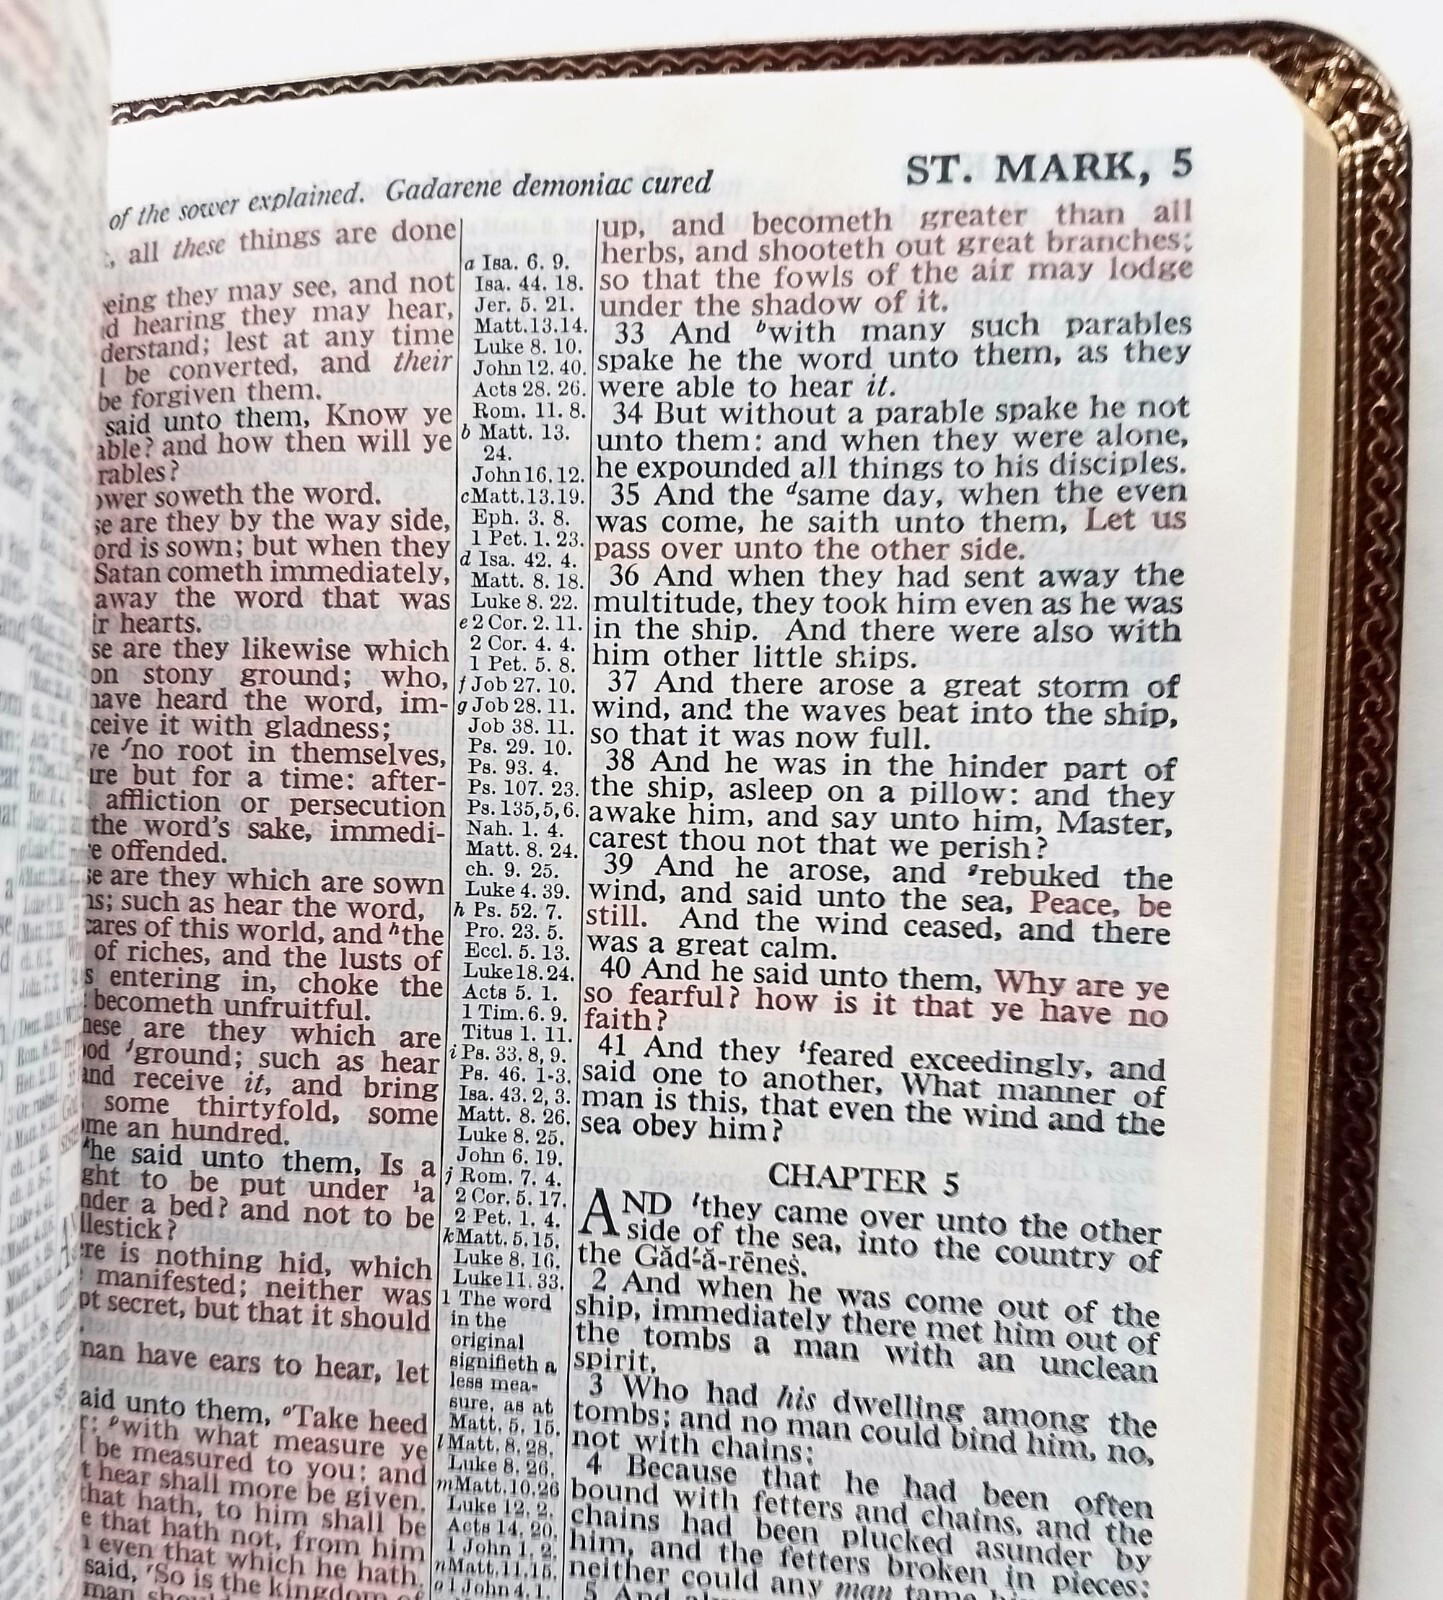 of the sower explained. Gadarene demoniac cured
ST. MARK, 5
all these things are done
they may see, and not
hearing they may hear,
lest at any time
be converted, and their
be forgiven them.
said unto them, Know ye
and how then will ye
soweth the word.
are they by the way side,
is sown; but when they
Satan cometh immediately,
away the word that was
hearts.
are they likewise which
on stony ground; who,
have heard the word, im-
ceive it with gladness;
no root in themselves,
but for a time: after-
affliction or persecution
the word's sake, immedi-
offended.
are they which are sown
such as hear the word,
cares of this world, and ʰthe
of riches, and the lusts of
entering in, choke the
becometh unfruitful.
are they which are
ground; such as hear
and receive it, and bring
some thirtyfold, some
an hundred.
he said unto them, Is a
to be put under ¹a
a bed? and not to be
is nothing hid, which
manifested; neither was
secret, but that it should
have ears to hear, let
unto them, ᵒTake heed
ᵖwith what measure ye
be measured to you: and
hear shall more be given.
that hath, to him shall be
that hath not, from him
even that which he hath.
said, ʳSo is the kingdom of
a Isa. 6. 9.
Isa. 44. 18.
Jer. 5. 21.
Matt.13.14.
Luke 8. 10.
John 12. 40.
Acts 28. 26.
Rom. 11. 8.
b Matt. 13.
24.
John 16. 12.
c Matt.13.19.
Eph. 3. 8.
1 Pet. 1. 23.
d Isa. 42. 4.
Matt. 8. 18.
Luke 8. 22.
e 2 Cor. 2. 11.
2 Cor. 4. 4.
1 Pet. 5. 8.
f Job 27. 10.
g Job 28. 11.
Job 38. 11.
Ps. 29. 10.
Ps. 93. 4.
Ps. 107. 23.
Ps. 135,5,6.
Nah. 1. 4.
Matt. 8. 24.
ch. 9. 25.
Luke 4. 39.
h Ps. 52. 7.
Pro. 23. 5.
Eccl. 5. 13.
Luke 18. 24.
Acts 5. 1.
1 Tim. 6. 9.
Titus 1. 11.
i Ps. 33. 8, 9.
Ps. 46. 1-3.
Isa. 43. 2, 3.
Matt. 8. 26.
Luke 8. 25.
John 6. 19.
j Rom. 7. 4.
2 Cor. 5. 17.
2 Pet. 1. 4.
k Matt. 5. 15.
Luke 8. 16.
Luke 11. 33.
1 The word
in the
original
signifieth a
less mea-
sure, as at
Matt. 5. 15.
l Matt. 8. 28.
Luke 8. 26.
m Matt. 10. 26
Luke 12. 2.
Acts 14. 20.
1 John 1. 2.
n Matt. 11. 15.
o 1 John 4. 1.
up, and becometh greater than all
herbs, and shooteth out great branches;
so that the fowls of the air may lodge
under the shadow of it.
33 And ᵇwith many such parables
spake he the word unto them, as they
were able to hear it.
34 But without a parable spake he not
unto them: and when they were alone,
he expounded all things to his disciples.
35 And the ᵈsame day, when the even
was come, he saith unto them, Let us
pass over unto the other side.
36 And when they had sent away the
multitude, they took him even as he was
in the ship. And there were also with
him other little ships.
37 And there arose a great storm of
wind, and the waves beat into the ship,
so that it was now full.
38 And he was in the hinder part of
the ship, asleep on a pillow: and they
awake him, and say unto him, Master,
carest thou not that we perish?
39 And he arose, and ᵍrebuked the
wind, and said unto the sea, Peace, be
still. And the wind ceased, and there
was a great calm.
40 And he said unto them, Why are ye
so fearful? how is it that ye have no
faith?
41 And they ⁱfeared exceedingly, and
said one to another, What manner of
man is this, that even the wind and the
sea obey him?
CHAPTER 5
AND ˡthey came over unto the other
side of the sea, into the country of
the Găd´-ă-rēnes.
2 And when he was come out of the
ship, immediately there met him out of
the tombs a man with an unclean
spirit,
3 Who had his dwelling among the
tombs; and no man could bind him, no,
not with chains:
4 Because that he had been often
bound with fetters and chains, and the
chains had been plucked asunder by
him, and the fetters broken in pieces:
neither could any man tame
5 And